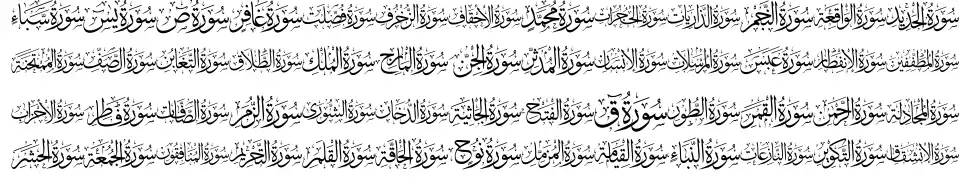 سورة الحديد سورة الواقعة سورة النجم سورة الذاريات سورة الحجرات سورة محمد سورة الأحقاف سورة الزخرف سورة فصلت سورة غافر سورة ص سورة يس سورة سباء
سورة المطففين سورة الانفطار سورة عبس سورة المرسلات سورة الانسان سورة المدثر سورة الجن سورة المارج سورة الملك سورة الطلاق سورة التغابن سورة الصف سورة الممتحنة
سورة المجادلة سورة الرحمن سورة القمر سورة الطور سورة ق سورة الفتح سورة الجاثية سورة الدخان سورة الشورى سورة الزمر سورة الصافات سورة فاطر سورة الاحزاب
سورة الانشقاق سورة التكوير سورة النازعات سورة النباء سورة القيامة سورة المزمل سورة نوح سورة الحاقة سورة القلم سورة التحريم سورة المنافقون سورة الجمعة سورة الحشر